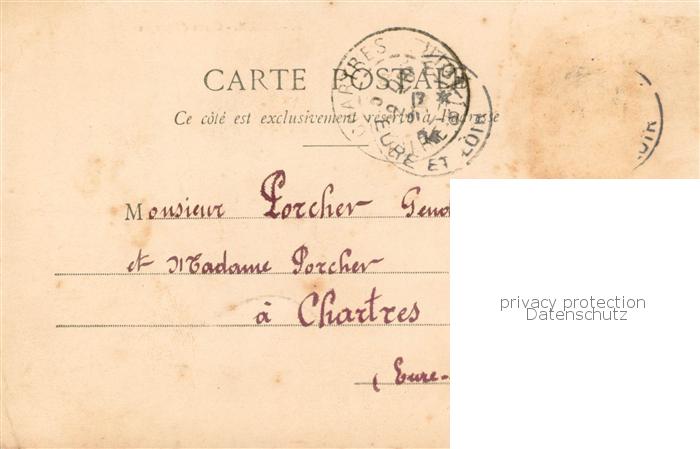 CARTE POSTALE
Ce côté est exclusivement réservé à l'adresse
CHARTRES
EURE ET LOIR
LOIR
Monsieur Porcher
et Madame Porcher
à Chartres
(Eure-
privacy protection
Datenschutz